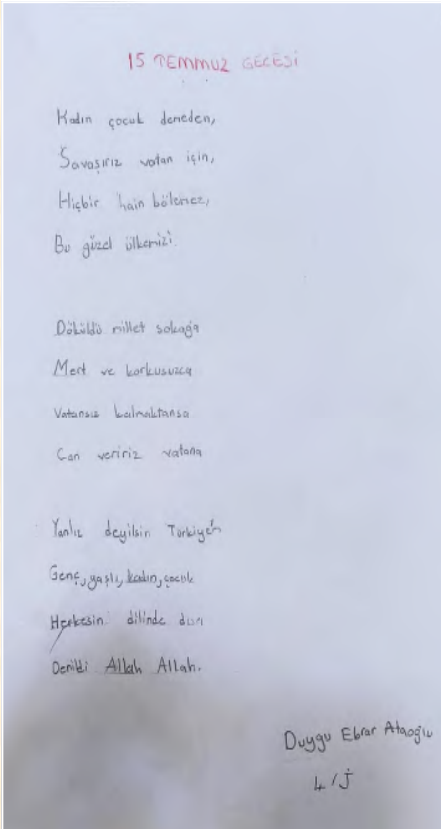 15 TEMMUZ GECESİ
Kadın çocuk demeden,
Savaşırız vatan için,
Hiçbir hain bölemez,
Bu güzel ülkemizi.
Döküldü millet sokağa
Mert ve korkusuzca
Vatansız kalmaktansa
Can veririz vatana
Yanlız deyilsin Türkiyem
Genç, yaşlı, kadın, çocuk
Herkesin dilinde dua
Denildi Allah Allah.
Duygu Ebrar Ataoğlu
4/J